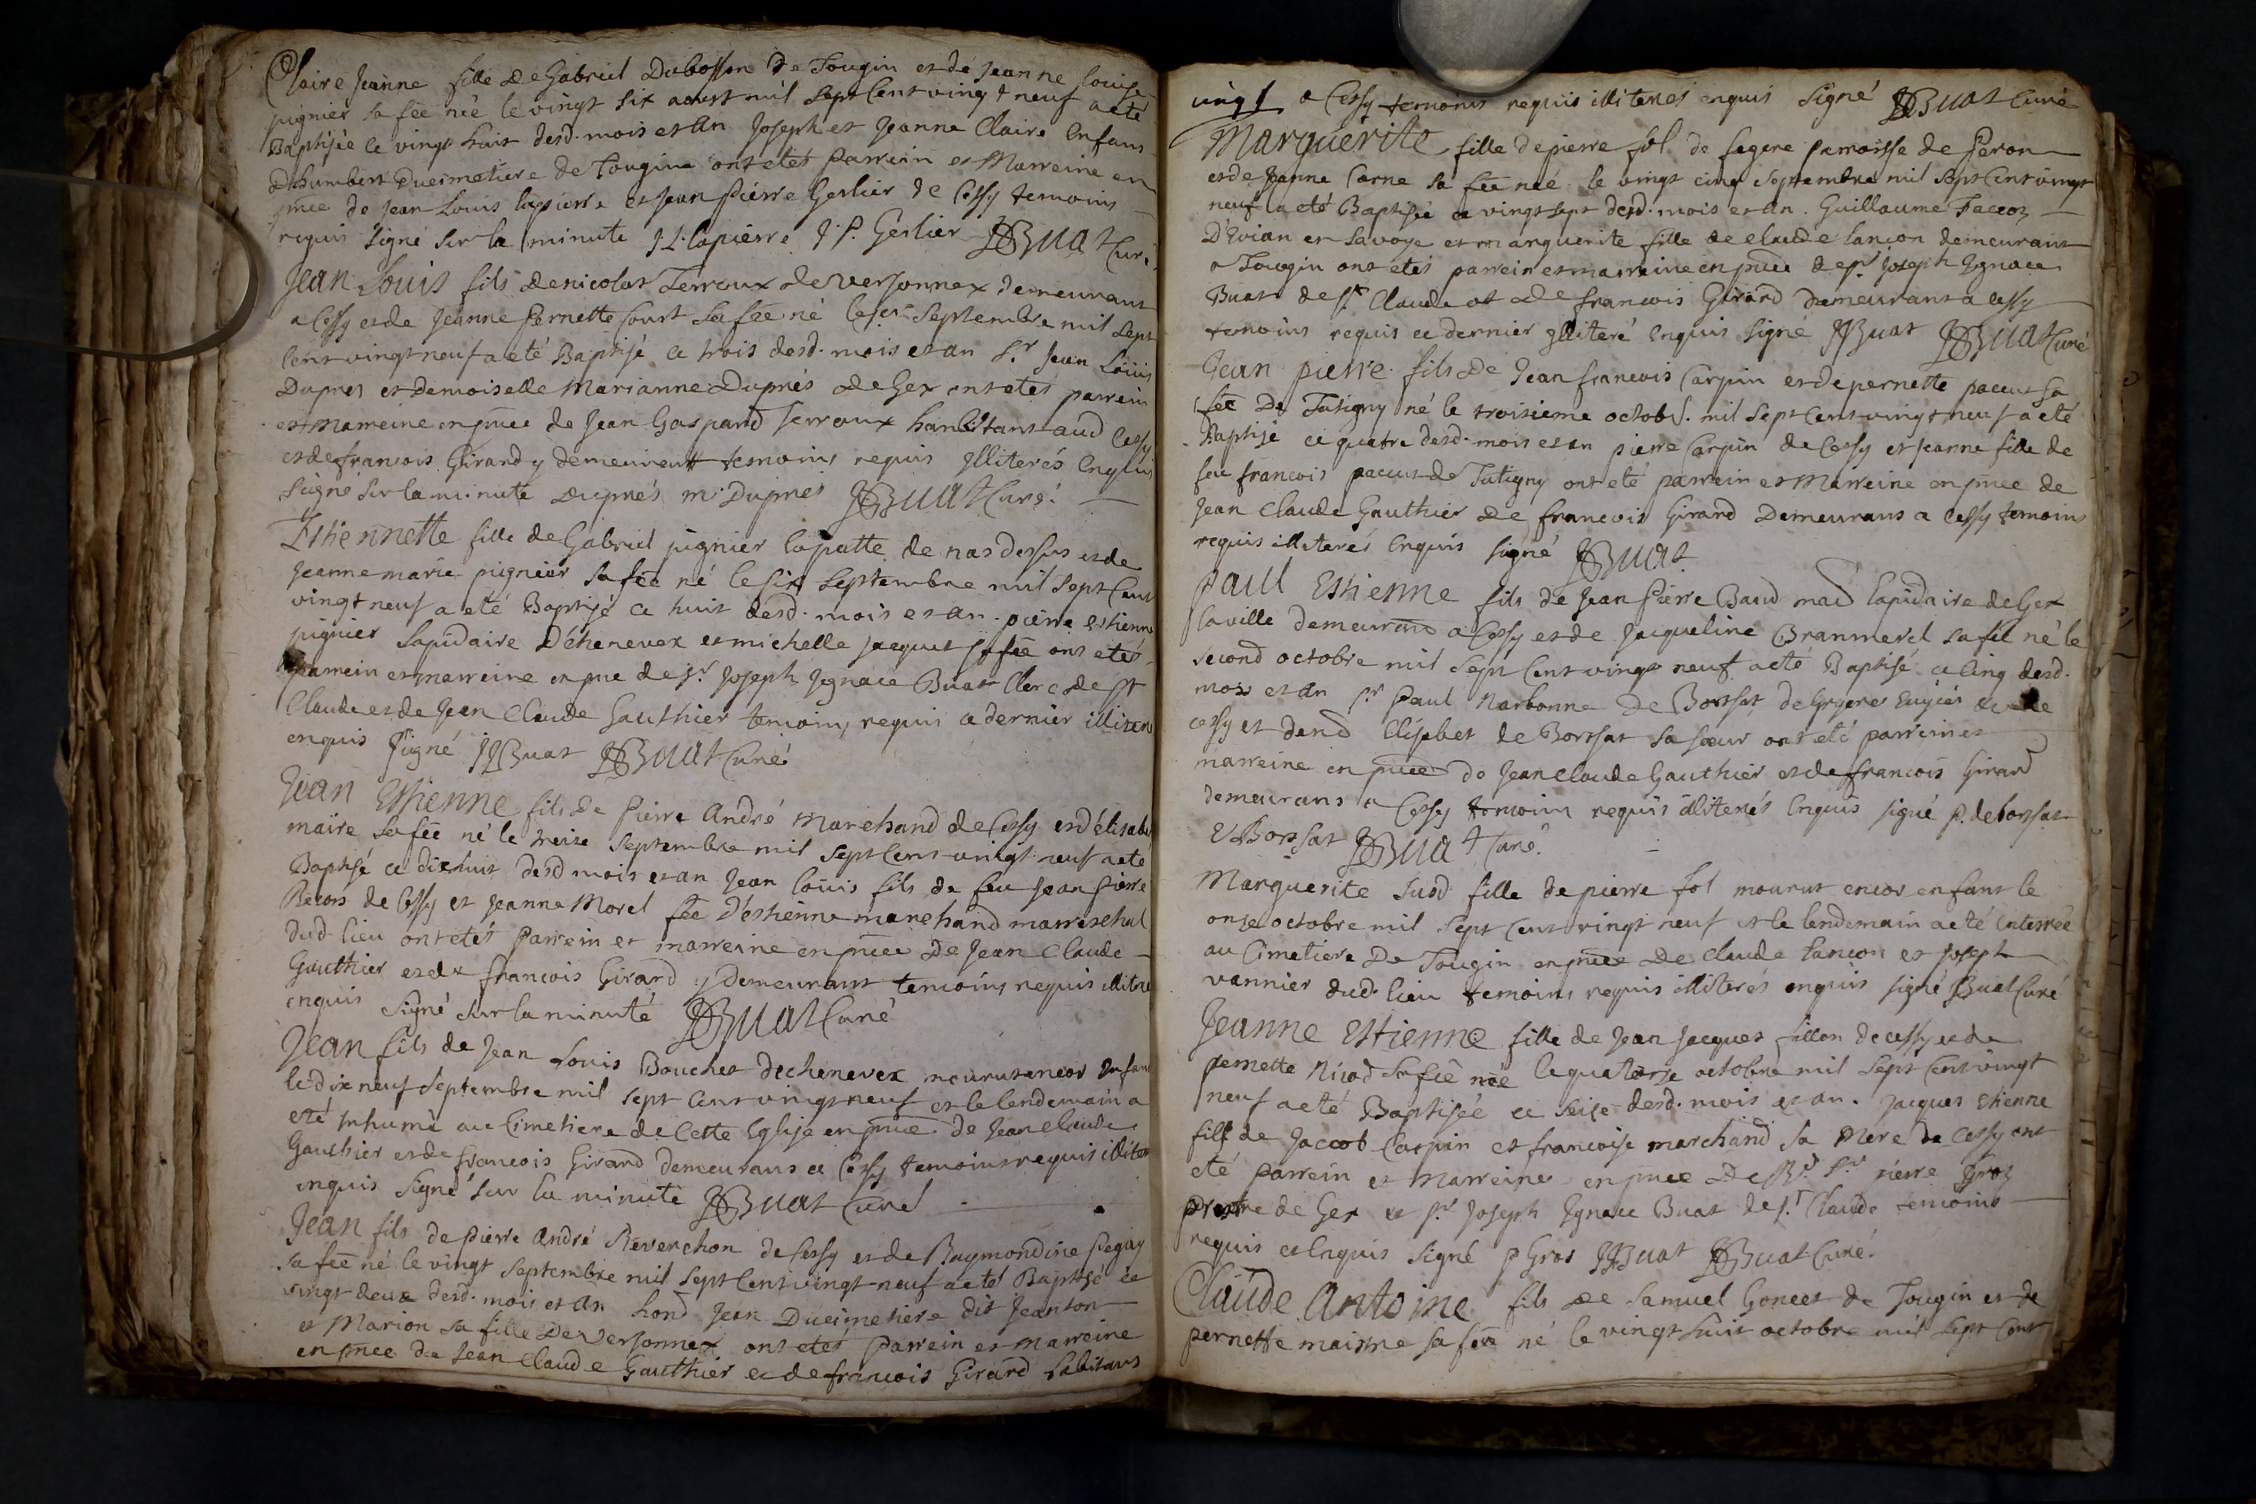 Claire Jeanne fille de Gabriel Dubosson de Tougin et de Jeanne Louise
pignier sa fẽe née le vingt six aoust mil sept cent vingt neuf a eté
Baptisée ce vingt huit desd. mois et an Joseph et Jeanne Claire enfans
D'humbert Ducimetiere de tougin ont etés parrein et Marreine en
pn̄ce de Jean Louis lapierre et Jean Pierre Gerlier de Cessy temoins
requis signé sur la minute J. L. lapierre J. P. Gerlier Buat Curé
Jean Louis fils de nicolas Terroux de Versonnex demeurant
a Cessy et de Jeanne Pernette sa fẽe né le septembre mil sept
cent vingt neuf a eté Baptisé ce trois desd. mois et an Sr. Jean Loüis
Dupres et demoiselle Marianne Duprés de Gex ont etés parrein
et marreine en pn̄ce de Jean Gaspard Terroux habitant aud Cessy
et de francois Girard y demeurent temoins requis illiterés enquis
signé sur la minute Duprés m. Duprés Buat Curé.
Estiennette fille de Gabriel pignier lapatte de nas dessus et de
Jeanne marie pignier sa fẽe né le six septembre mil sept cent
vingt neuf a eté Baptisé ce huit desd. mois et an. pierre estienne
pignier lapidaire D'échenevex et michelle jacquet sa fẽe ont etés
parrein et marreine en pn̄ce de sr. Joseph Ignace Buat Clerc de St
Claude et de Jean Claude Gauthier temoins requis ce dernier illiteré
enquis signé JJBuat Buat Curé
Jean Estienne fils de Pierre André Marchand de Cessy et d'élisabet
maire sa fẽe né le treize septembre mil sept cent vingt neuf a eté
Baptisé ce dixhuit desd mois et an Jean loüis fils de feu Jean Pierre
de Cessy et Jeanne Morel fẽe D'éstienne marchand mareschal
dud. lieu ont etés parrein et marreine en pn̄ce de Jean Claude
Gauthier et de francois Girard y demeurant temoins requis illiterés
enquis signé sur la minute Buat Curé
Jean fils de Jean Louis Bouchet dechenevex mourut encor enfant
le dix neuf septembre mil sept cent vingt neuf et le lendemain a
eté inhumé au Cimetiere de Cette Eglise en pn̄ce de Jean Claude
Gauthier et de francois Girard demeurans a Cessy temoins requis illiterés
enquis signé sur la minute Buat Curé
Jean fils de Pierre André Reverchon de Cessy et de Raymondine Pegay
sa fẽe né le vingt septembre mil sept cent vingt neuf a eté Baptisé ce
vingt deux desd. mois et an hond Jean Ducimetiere dit Jeanton
et Marion sa fille de Versonnex ont etés Parrein et Marreine
en pn̄ce de Jean Claude Gauthier et de francois Girard habitans
a Cessy temoins requis illiterés enquis signé Buat Curé
Marguerite fille de pierre fol de paroisse de Peron
et de Jeanne Carne sa fẽe neé le vingt cinq septembre mil sept cent vingt
neuf a eté Baptisée ce vingt sept desd. mois et an. Guillaume
D'Evian en Savoye et marguerite fille de claude lancon demeurant
a Tougin ont etés parrein et marreine en pn̄ce de sr Joseph Ignace
Buat de St. Claude et de francois Girard demeurant a Cessy
temoins requis ce dernier illiteré enquis signé JJBuat Buat Curé
Jean pierre fils de Jean francois Carpin et de pernette paccut sa
fẽe De Tutigny né le troisieme octob. mil sept cent vingt neuf a eté
Baptisé ce quatre desd. mois et an pierre Carpin de Cessy et Jeanne fille de
feu francois paccut de Tutigny ont eté parrein et Marreine en pn̄ce de
Jean Claude Gauthier de francois Girard Demeurans a Cessy temoins
requis illiterés enquis signé Buat
Paul Estienne fils de Jean Pierre Baud mad lapidaire de Gex
la ville demeurand a Cessy et de Jacqueline Branmerel sa fẽe né le
second octobre mil sept cent vingt neuf a eté Baptisé ce cinq desd.
mois et an sr Paul Narbonne De Borssat
cessy et demd Elisabet de Borssat sa soeur ont eté parrein et
marreine en pn̄ce de Jean Claude Gauthier et de francois Girard
demeurans a Cessy temoins requis illiterés enquis signé p. de borssat
E Borssat Buat Curé.
Marguerite susd. fille de pierre fol mourut encor enfant le
onze octobre mil sept cent vingt neuf et le lendemain a eté enterrée
au Cimetiere De Tougin en pn̄ce De claude lancon et Joseph
vannier dud. lieu temoins requis illiterés enquis signé Buat Curé
Jeanne Estienne fille de Jean Jacques fillon de cessy et de
pernette Nicod sa fẽe née le quatorze octobre mil sept cent vingt
neuf a eté Baptisée ce seize desd. mois et an. Jacques Etienne
fils de Jaccob Carpin et francoise marchand sa mere de Cessy ont
eté parrein et Marreine en pn̄ce De Rd. Sr. pierre Gros
prestre de Gex et sr. Joseph Ignace Buat de St. Claude temoins
requis et enquis signé p Gros JJBuat Buat Curé.
Claude Antoine fils de Samuel Goncet de Tougin et de
pernette maistre sa fẽe né le vingt huit octobre mil sept cent